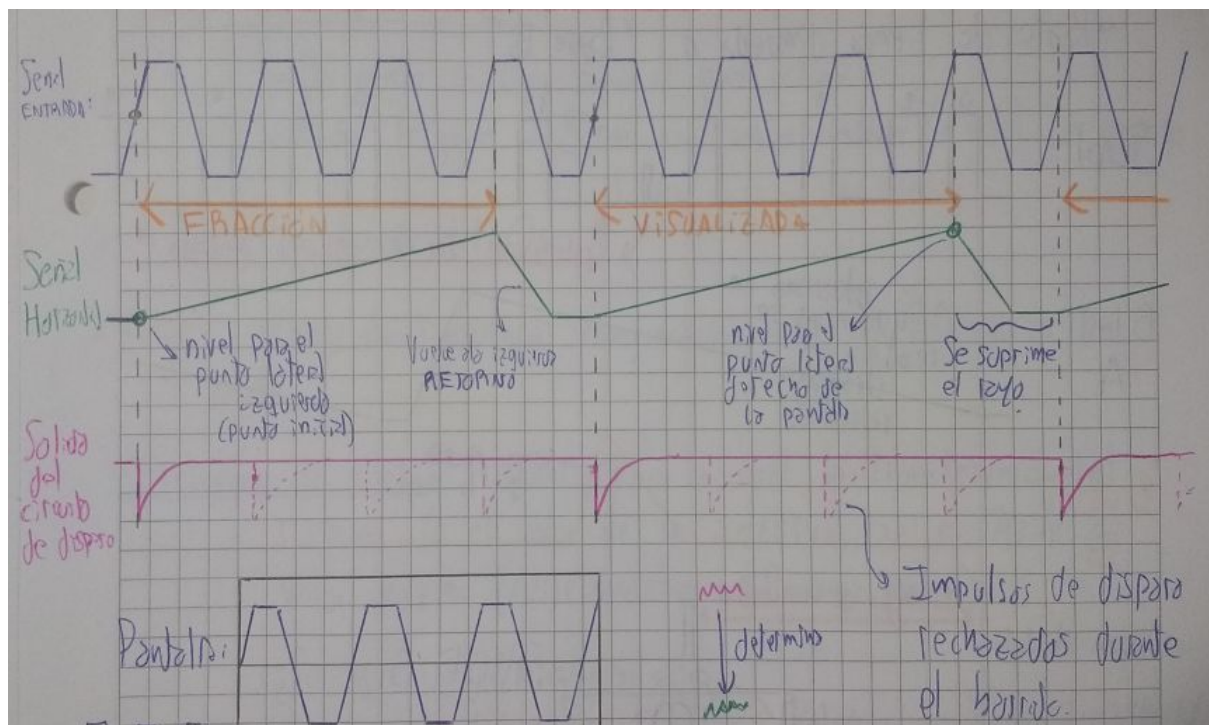 Señal
ENTRADA:
FRACCIÓN
VISUALIZADA
Señal
Horizontal
nivel para el
punto lateral
izquierdo
(punto inicial)
Vuelve a la izquierda
RETORNO
nivel para el
punto lateral
derecho de
la pantalla
Se suprime
el rayo.
Salida
del
circuito
de disparo
Impulsos de disparo
rechazados durante
el barrido.
Pantalla:
determina